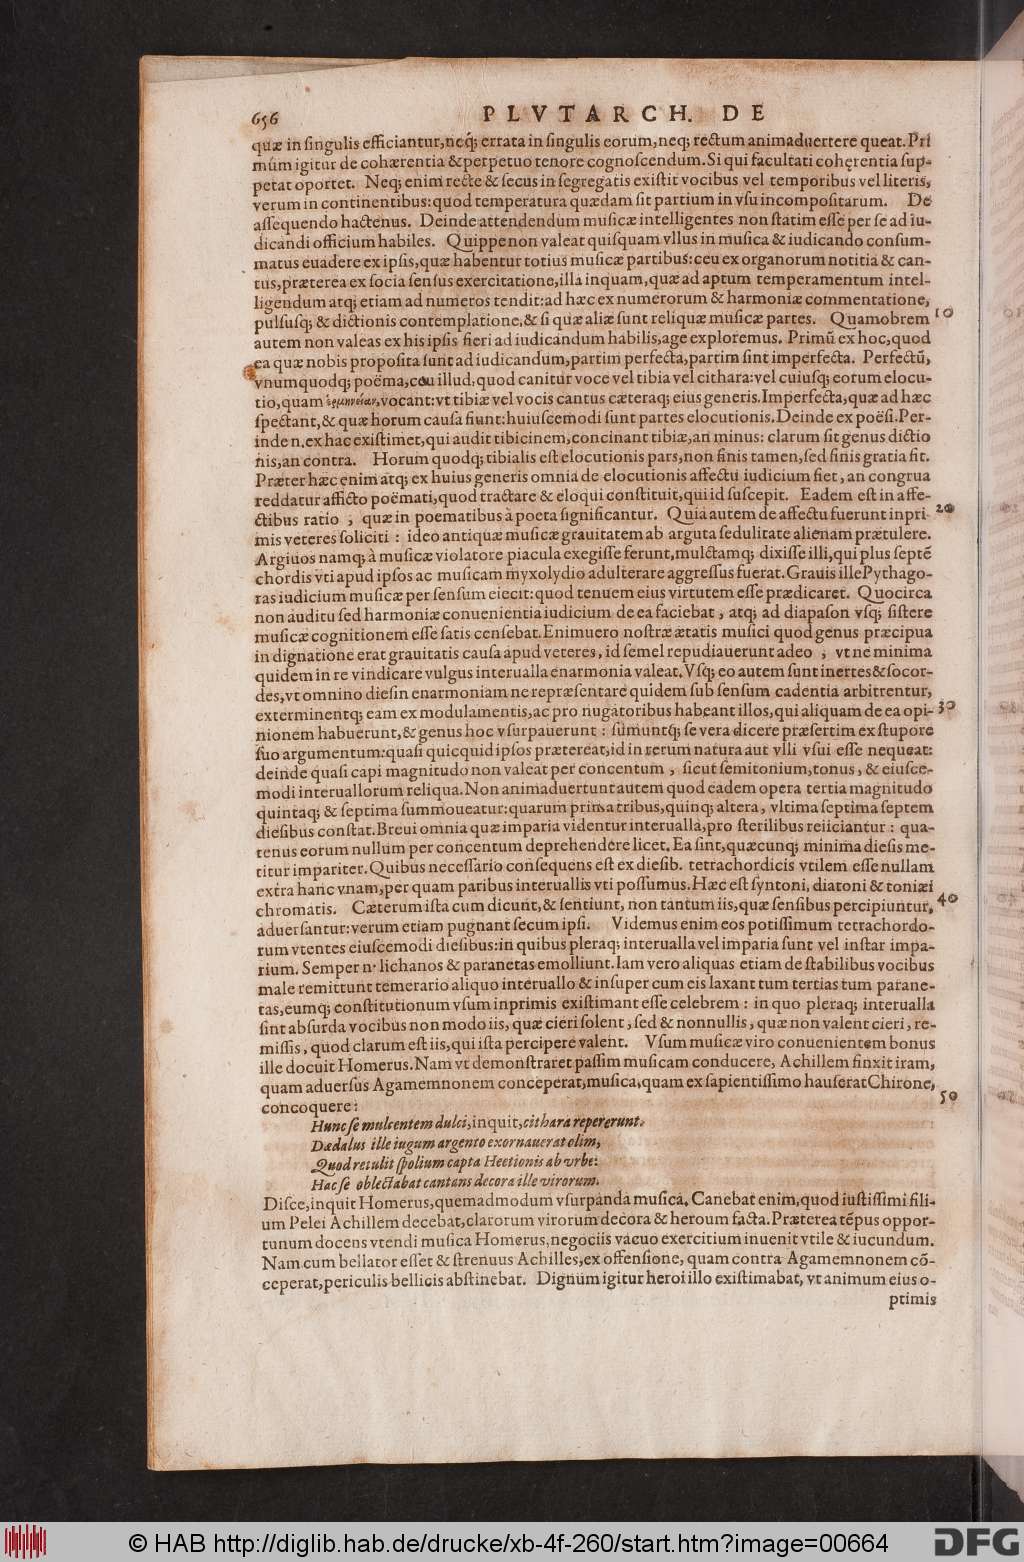 656 PLVTARCH. DE
quæ in singulis efficiantur, neq; errata in singulis eorum, neq; rectum animaduertere queat. Pri
mùm igitur de cohærentia & perpetuo tenore cognoscendum. Si qui facultati cohęrentia sup-
petat oportet. Neq; enim recte & secus in segregatis existit vocibus vel temporibus vel literis,
verum in continentibus: quod temperatura quædam sit partium in vsu incompositarum. De
assequendo hactenus. Deinde attendendum musicæ intelligentes non statim esse per se ad iu-
dicandi officium habiles. Quippe non valeat quisquam vllus in musica & iudicando consum-
matus euadere ex ipsis, quæ habentur totius musicæ partibus: ceu ex organorum notitia & can-
tus, præterea ex socia sensus exercitatione, illa inquam, quæ ad aptum temperamentum intel-
ligendum atq; etiam ad numeros tendit: ad hæc ex numerorum & harmoniæ commentatione,
pulsusq; & dictionis contemplatione, & si quæ aliæ sunt reliquæ musicæ partes. Quamobrem 10
autem non valeas ex his ipsis fieri ad iudicandum habilis, age exploremus. Primū ex hoc, quod
ea quæ nobis proposita sunt ad iudicandum, partim perfecta, partim sint imperfecta. Perfectū,
vnumquodq; poëma, ceu illud, quod canitur voce vel tibia vel cithara: vel cuiusq; eorum elocu-
tio, quam ἑρμηνείαν, vocant: vt tibiæ vel vocis cantus cæteraq; eius generis. Imperfecta, quæ ad hæc
spectant, & quæ horum causa fiunt: huiuscemodi sunt partes elocutionis. Deinde ex poësi. Per-
inde n. ex hac existimet, qui audit tibicinem, concinant tibiæ, an minus: clarum sit genus dictio
nis, an contra. Horum quodq; tibialis est elocutionis pars, non finis tamen, sed finis gratia fit.
Præter hæc enim atq; ex huius generis omnia de elocutionis affectu iudicium fiet, an congrua
reddatur afficto poëmati, quod tractare & eloqui constituit, qui id suscepit. Eadem est in affe-
ctibus ratio, quæ in poematibus à poeta significantur. Quia autem de affectu fuerunt inpri- 20
mis veteres soliciti: ideo antiquæ musicæ grauitatem ab arguta sedulitate alienam prætulere.
Argiuos namq; à musicæ violatore piacula exegisse ferunt, mulctamq; dixisse illi, qui plus septē
chordis vti apud ipsos ac musicam myxolydio adulterare aggressus fuerat. Grauis ille Pythago-
ras iudicium musicæ per sensum eiecit: quod tenuem eius virtutem esse prædicaret. Quocirca
non auditu sed harmoniæ conuenientia iudicium de ea faciebat, atq; ad diapason vsq; sistere
musicæ cognitionem esse satis censebat. Enimuero nostræ ætatis musici quod genus præcipua
in dignatione erat grauitatis causa apud veteres, id semel repudiauerunt adeo, vt ne minima
quidem in re vindicare vulgus interualla enarmonia valeat. Vsq; eo autem sunt inertes & socor-
des, vt omnino diesin enarmoniam ne repræsentare quidem sub sensum cadentia arbitrentur,
exterminentq; eam ex modulamentis, ac pro nugatoribus habeant illos, qui aliquam de ea opi- 30
nionem habuerunt, & genus hoc vsurpauerunt: sumuntq; se vera dicere præsertim ex stupore
suo argumentum: quasi quicquid ipsos prætereat, id in rerum natura aut vlli vsui esse nequeat:
deinde quasi capi magnitudo non valeat per concentum, sicut semitonium, tonus, & eiusce-
modi interuallorum reliqua. Non animaduertunt autem quod eadem opera tertia magnitudo
quintaq; & septima summoueatur: quarum prima tribus, quinq; altera, vltima septima septem
diesibus constat. Breui omnia quæ imparia videntur interualla, pro sterilibus reiiciantur: qua-
tenus eorum nullum per concentum deprehendere licet. Ea sint, quæcunq; minima diesis me-
titur impariter. Quibus necessario consequens est ex diesib. tetrachordicis vtilem esse nullam
extra hanc vnam, per quam paribus interuallis vti possumus. Hæc est syntoni, diatoni & toniæi
chromatis. Cæterum ista cum dicunt, & sentiunt, non tantum iis, quæ sensibus percipiuntur, 40
aduersantur: verum etiam pugnant secum ipsi. Videmus enim eos potissimum tetrachordo-
rum vtentes eiuscemodi diesibus: in quibus pleraq; interualla vel imparia sunt vel instar impa-
rium. Semper n. lichanos & paranetas emolliunt. Iam vero aliquas etiam de stabilibus vocibus
male remittunt temerario aliquo interuallo & insuper cum eis laxant tum tertias tum parane-
tas, eumq; constitutionum vsum inprimis existimant esse celebrem: in quo pleraq; interualla
sint absurda vocibus non modo iis, quæ cieri solent, sed & nonnullis, quæ non valent cieri, re-
missis, quod clarum est iis, qui ista percipere valent. Vsum musicæ viro conuenientem bonus
ille docuit Homerus. Nam vt demonstraret passim musicam conducere, Achillem finxit iram,
quam aduersus Agamemnonem conceperat, musica, quam ex sapientissimo hauserat Chirone,
concoquere: 50
Hunc se mulcentem dulci, inquit, cithara repererunt.
Dædalus ille iugum argento exornauerat olim,
Quod retulit spolium capta Heetionis ab vrbe:
Hac se oblectabat cantans decora ille virorum.
Disce, inquit Homerus, quemadmodum vsurpanda musica. Canebat enim, quod iustissimi fili-
um Pelei Achillem decebat, clarorum virorum decora & heroum facta. Præterea tēpus oppor-
tunum docens vtendi musica Homerus, negociis vacuo exercitium inuenit vtile & iucundum.
Nam cum bellator esset & strenuus Achilles, ex offensione, quam contra Agamemnonem cō-
ceperat, periculis bellicis abstinebat. Dignum igitur heroi illo existimabat, vt animum eius o-
ptimis
© HAB http://diglib.hab.de/drucke/xb-4f-260/start.htm?image=00664
DFG